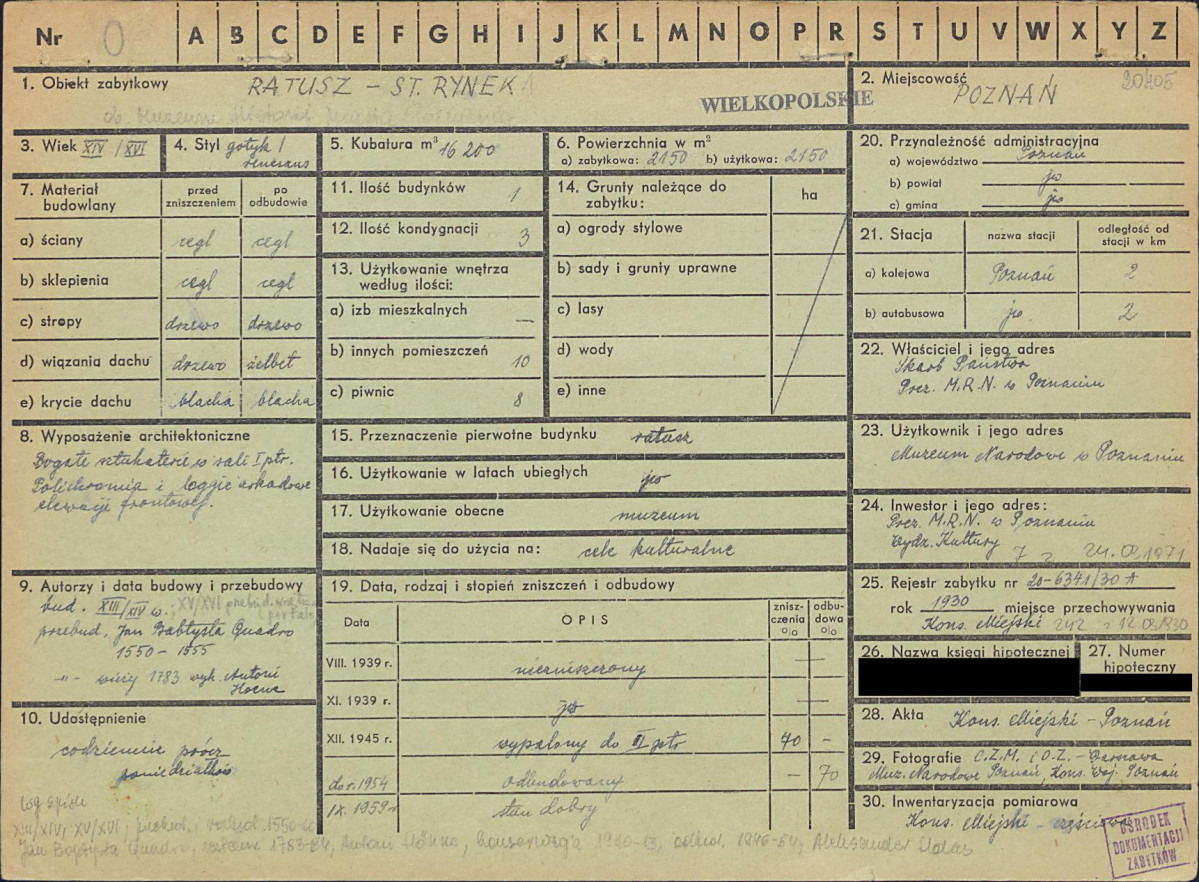 Nr 0 A B C D E F G H I J K L M N O P R S T U V W X Y Z
1. Obiekt zabytkowy RATUSZ – ST. RYNEK 1
ob. Muzeum Historii Miasta Poznania
WIELKOPOLSKIE
2. Miejscowość POZNAŃ 20405
3. Wiek XIV/XVI
4. Styl gotyk / renesans
5. Kubatura m³ 16 200
6. Powierzchnia w m²
a) zabytkowa: 2150 b) użytkowa: 2150
7. Materiał budowlany
przed zniszczeniem
po odbudowie
a) ściany cegł cegł
b) sklepienia cegł cegł
c) stropy drzewo drzewo
d) wiązania dachu drzewo żelbet
e) krycie dachu blacha blacha
8. Wyposażenie architektoniczne
Bogate sztukaterie w sali I ptr.
Polichromia i loggie arkadowe
elewacji frontowej.
9. Autorzy i data budowy i przebudowy
bud. XIII/XIV w.; XV/XVI przebud. wnętrza i portale
przebud. Jan Babtysta Quadro
1550 – 1555
–„– wieży 1783 wyk. Antoni
Hoene
10. Udostępnienie
codziennie prócz
poniedziałków
11. Ilość budynków 1
12. Ilość kondygnacji 3
13. Użytkowanie wnętrza
według ilości:
a) izb mieszkalnych —
b) innych pomieszczeń 10
c) piwnic 8
14. Grunty należące do
zabytku:
ha
a) ogrody stylowe
b) sady i grunty uprawne
c) lasy
d) wody
e) inne
15. Przeznaczenie pierwotne budynku ratusz
16. Użytkowanie w latach ubiegłych jw
17. Użytkowanie obecne muzeum
18. Nadaje się do użycia na: cele kulturalne
19. Data, rodzaj i stopień zniszczeń i odbudowy
Data OPIS zniszczenia o/o odbudowa o/o
VIII. 1939 r. niezniszczony —
XI. 1939 r. jw —
XII. 1945 r. wypalony do II ptr 70 –
do r. 1954 odbudowany – 70
IX. 1959 r stan dobry
20. Przynależność administracyjna
a) województwo Poznań
b) powiat jw
c) gmina jw
21. Stacja nazwa stacji odległość od stacji w km
a) kolejowa Poznań 2
b) autobusowa jw 2
22. Właściciel i jego adres
Skarb Państwa
Prez. M.R.N. w Poznaniu
23. Użytkownik i jego adres
Muzeum Narodowe w Poznaniu
24. Inwestor i jego adres:
Prez. M.R.N. w Poznaniu
Wydz. Kultury
25. Rejestr zabytku nr 20-6341/30 A
rok 1930 miejsce przechowywania
Kons. Miejski 242 z 12.02.1930
26. Nazwa księgi hipotecznej
27. Numer hipoteczny
28. Akta Kons. Miejski – Poznań
29. Fotografie C.Z.M. i O.Z. – Warszawa
Muz. Narodowe Poznań, Kons. Woj. Poznań
30. Inwentaryzacja pomiarowa
Kons. Miejski – częściowa
XIII/XIV, XV/XVI, przebud. i rozbud. 1550-60
Jan Baptysta Quadro. 1783-84, Antoni Höhne, konserwacja 1910-13, odbud. 1945-54,
OŚRODEK
DOKUMENTACJI
ZABYTKÓW